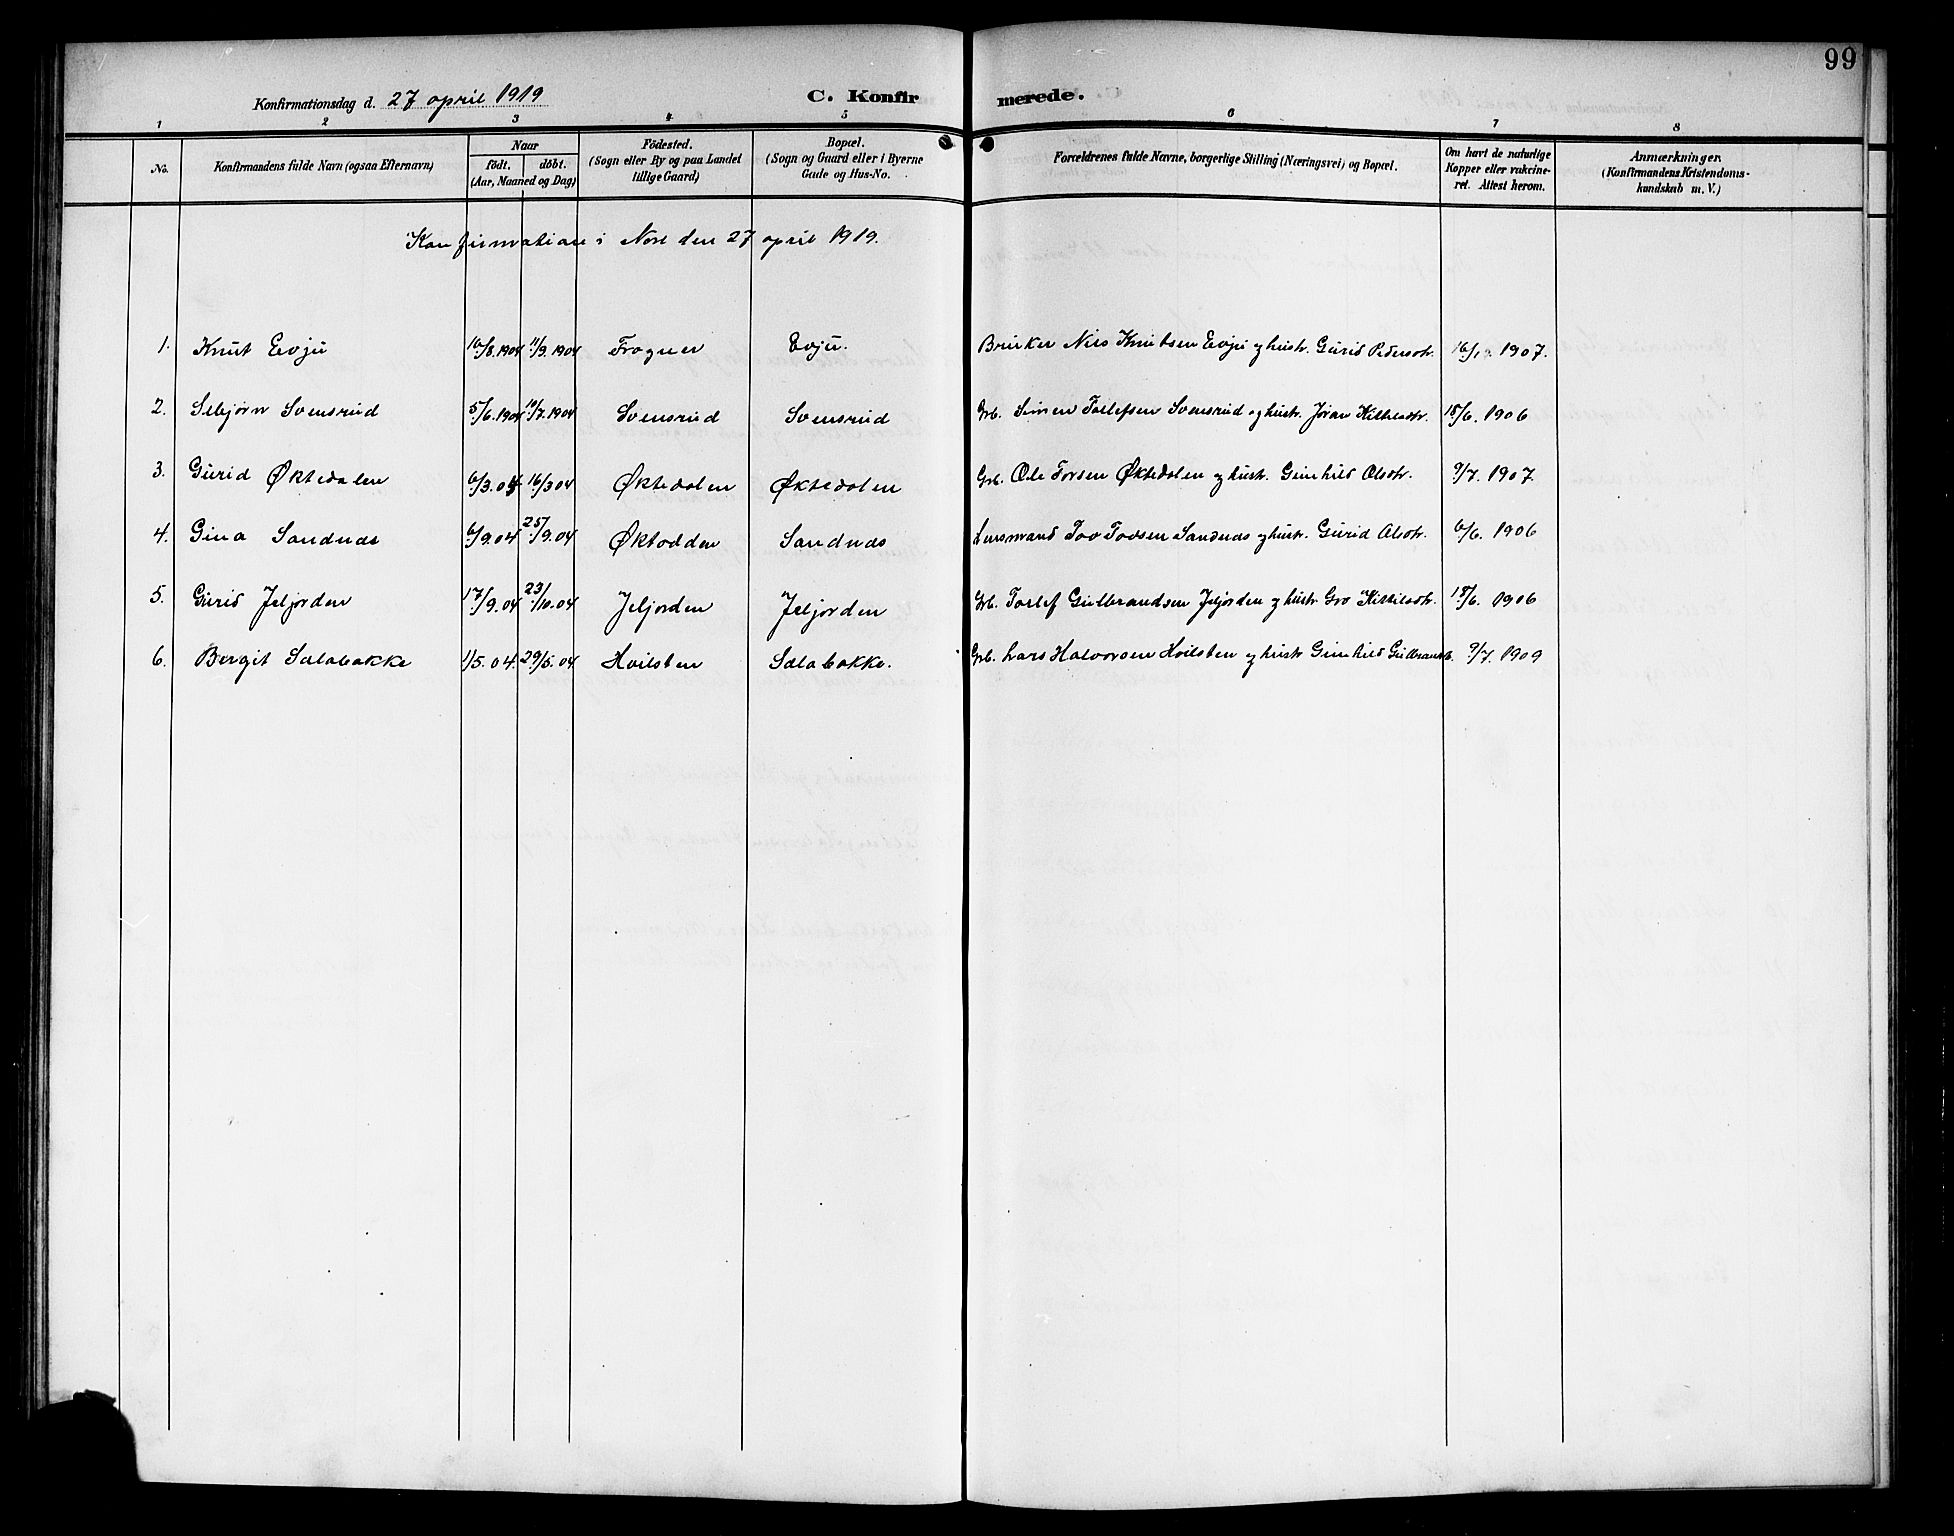 99
Konfirmationsdag d. 27 april 1919 C. Konfirmerede.
1 2 3 4 5 6 7 8
No. Konfirmandens fulde Navn (ogsaa Efternavn) Naar födt. döbt. (Aar, Maaned og Dag) Födested. (Sogn eller By og paa Landet tillige Gaard) Bopæl. (Sogn og Gaard eller i Byerne Gade og Hus-No. Forældrenes fulde Navne, borgerlige Stilling (Næringsvei) og Bopæl. Om havt de naturlige Kopper eller vakcineret. Attest herom. Anmærkninger. (Konfirmandens Kristendomskundskab m. V.)
Konfirmation i Nore den 27 april 1919.
1. Knut Evju 16/8.1904 11/9.1904 Frogner Evju. Bruker Nils Knutsen Evju og hustr. Gurid Pedersdtr. 1907.
2. Sebjørn Svensrud 5/6.1904 10/7.1904 Svensrud Svensrud Grb. Simen Tollefsen Svensrud og hustr. Jøran Kittilsdtr. 18/6. 1906
3. Gurid Øktedalen 6/3.04 16/3 04 Øktedalen Øktedalen Grb. Ole Torsen Øktedalen og hustr. Gunhild Olsdtr. 9/7. 1907.
4. Gina Sandnæs 6/9.04 25/9.04 Øktodden Sandnæs Lensmand Tov Tovsen Sandnæs og hustr. Gurid Olsdtr. 6/6. 1906
5. Gurid Jeljorden 17/9.04 23/10.04 Jeljorden Jeljorden Grb. Tollef Gulbrandsen Jeljorden og hustr. Gro Kittilsdtr. 18/6. 1906
6. Bergit Sælabakke 1/5.04. 29/5.04 Hvilsten Sælabakke. Grb. Lars Halvorsen Hvilsten og hustr. Gunhild 9/7. 1909